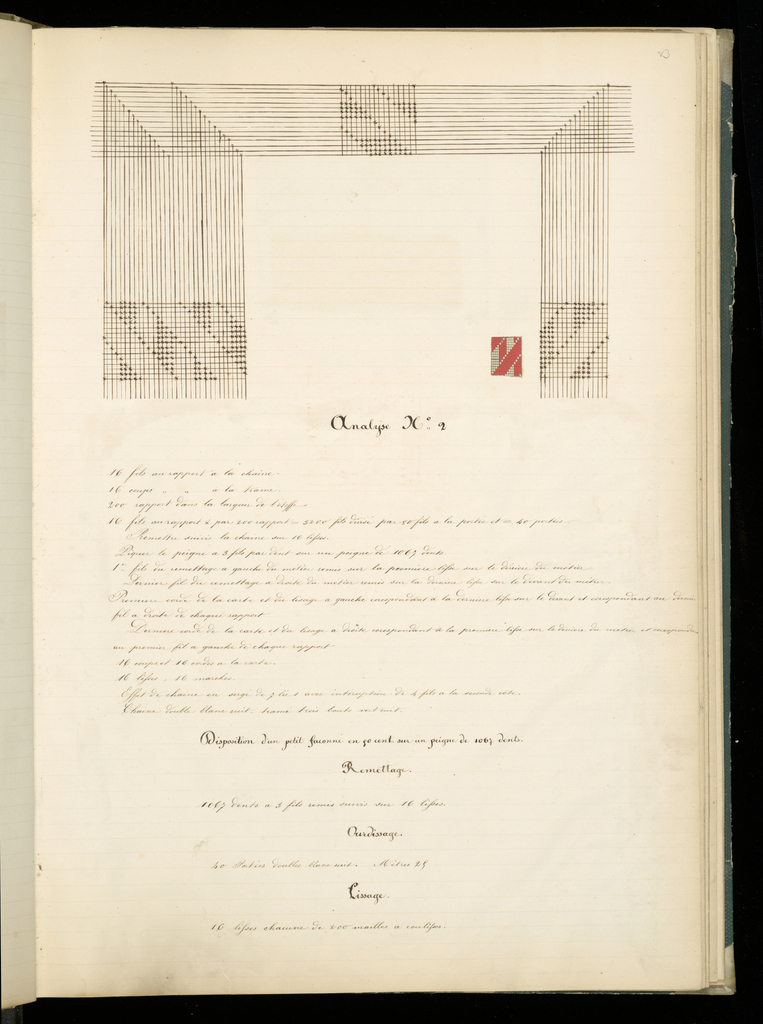 Analyse N.° 2
16 fils au rapport à la chaine.
16 coups " " à la trame.
200 rapport dans la largeur de l'étoffe.
16 fils au rapport x par 200 rapport = 3200 fils divisé par 80 fils a la portée et = 40 portées.
Remettre suivis la chaine sur 16 lisses.
Piquer le peigne a 3 fils par dent sur un peigne de 1067 dents.
1er fils du remettage a gauche du métier remis sur la première lisse sur le derière du métier.
Dernier fil du remettage a droite du métier remis sur la dernière lisse sur le devant du métier.
Première corde de la carte et du lisage a gauche correspondant a la dernière lisse sur le devant et correspondant au dernier
fil a droite de chaque rapport
Dernière corde de la carte et du lisage a droite correspondant a la première lisse sur le derière du métier et correspondant
au premier fil a gauche de chaque rapport
16 coups et 16 cordes a la carte.
16 lisses, 16 marches.
Effet de chaine en sergé de 7 lie 1 avec interruption de 4 fils a la seconde cote.
Chaine double blanc cuit. tramé trois bouts cuit.
Disposition d'un petit façonné en 50 cent sur un peigne de 1067 dents.
Remettage.
1067 dents a 3 fils remis suivis sur 16 lisses.
Ourdissage.
40 Portées doubles blanc cuit. Mètres 25
Lissage.
16 lisses chacune de 200 mailles a coulisse.